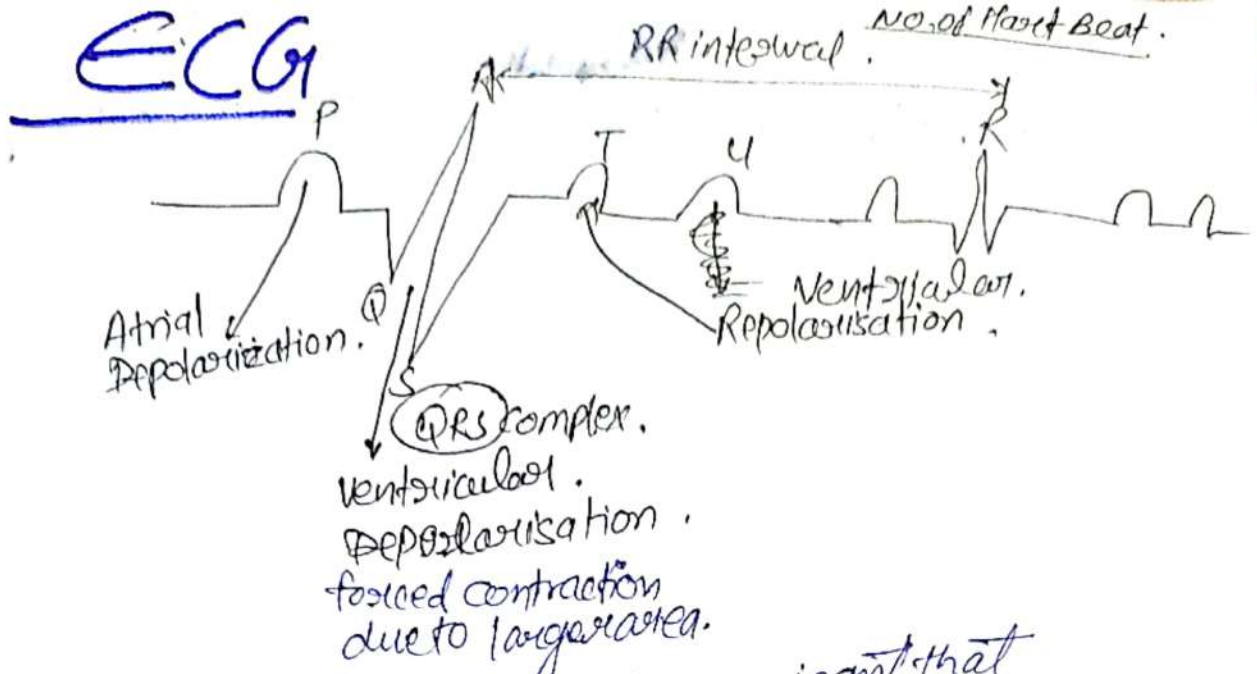 ECG
No. of Heart Beat.
RR interval.
P
R
T
U
R
Q
S
Atrial
Depolarization.
Ventricular.
Repolarisation.
QRS complex.
ventricular.
Depolarisation.
forced contraction
due to larger area.
that